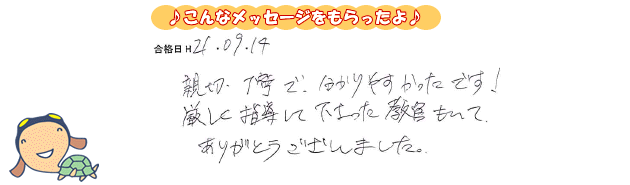 ♪こんなメッセージをもらったよ♪
合格日 H21.09.14
親切、丁寧で、分かりやすかったです!
厳しく指導して下さった教官もいて、
ありがとうございました。